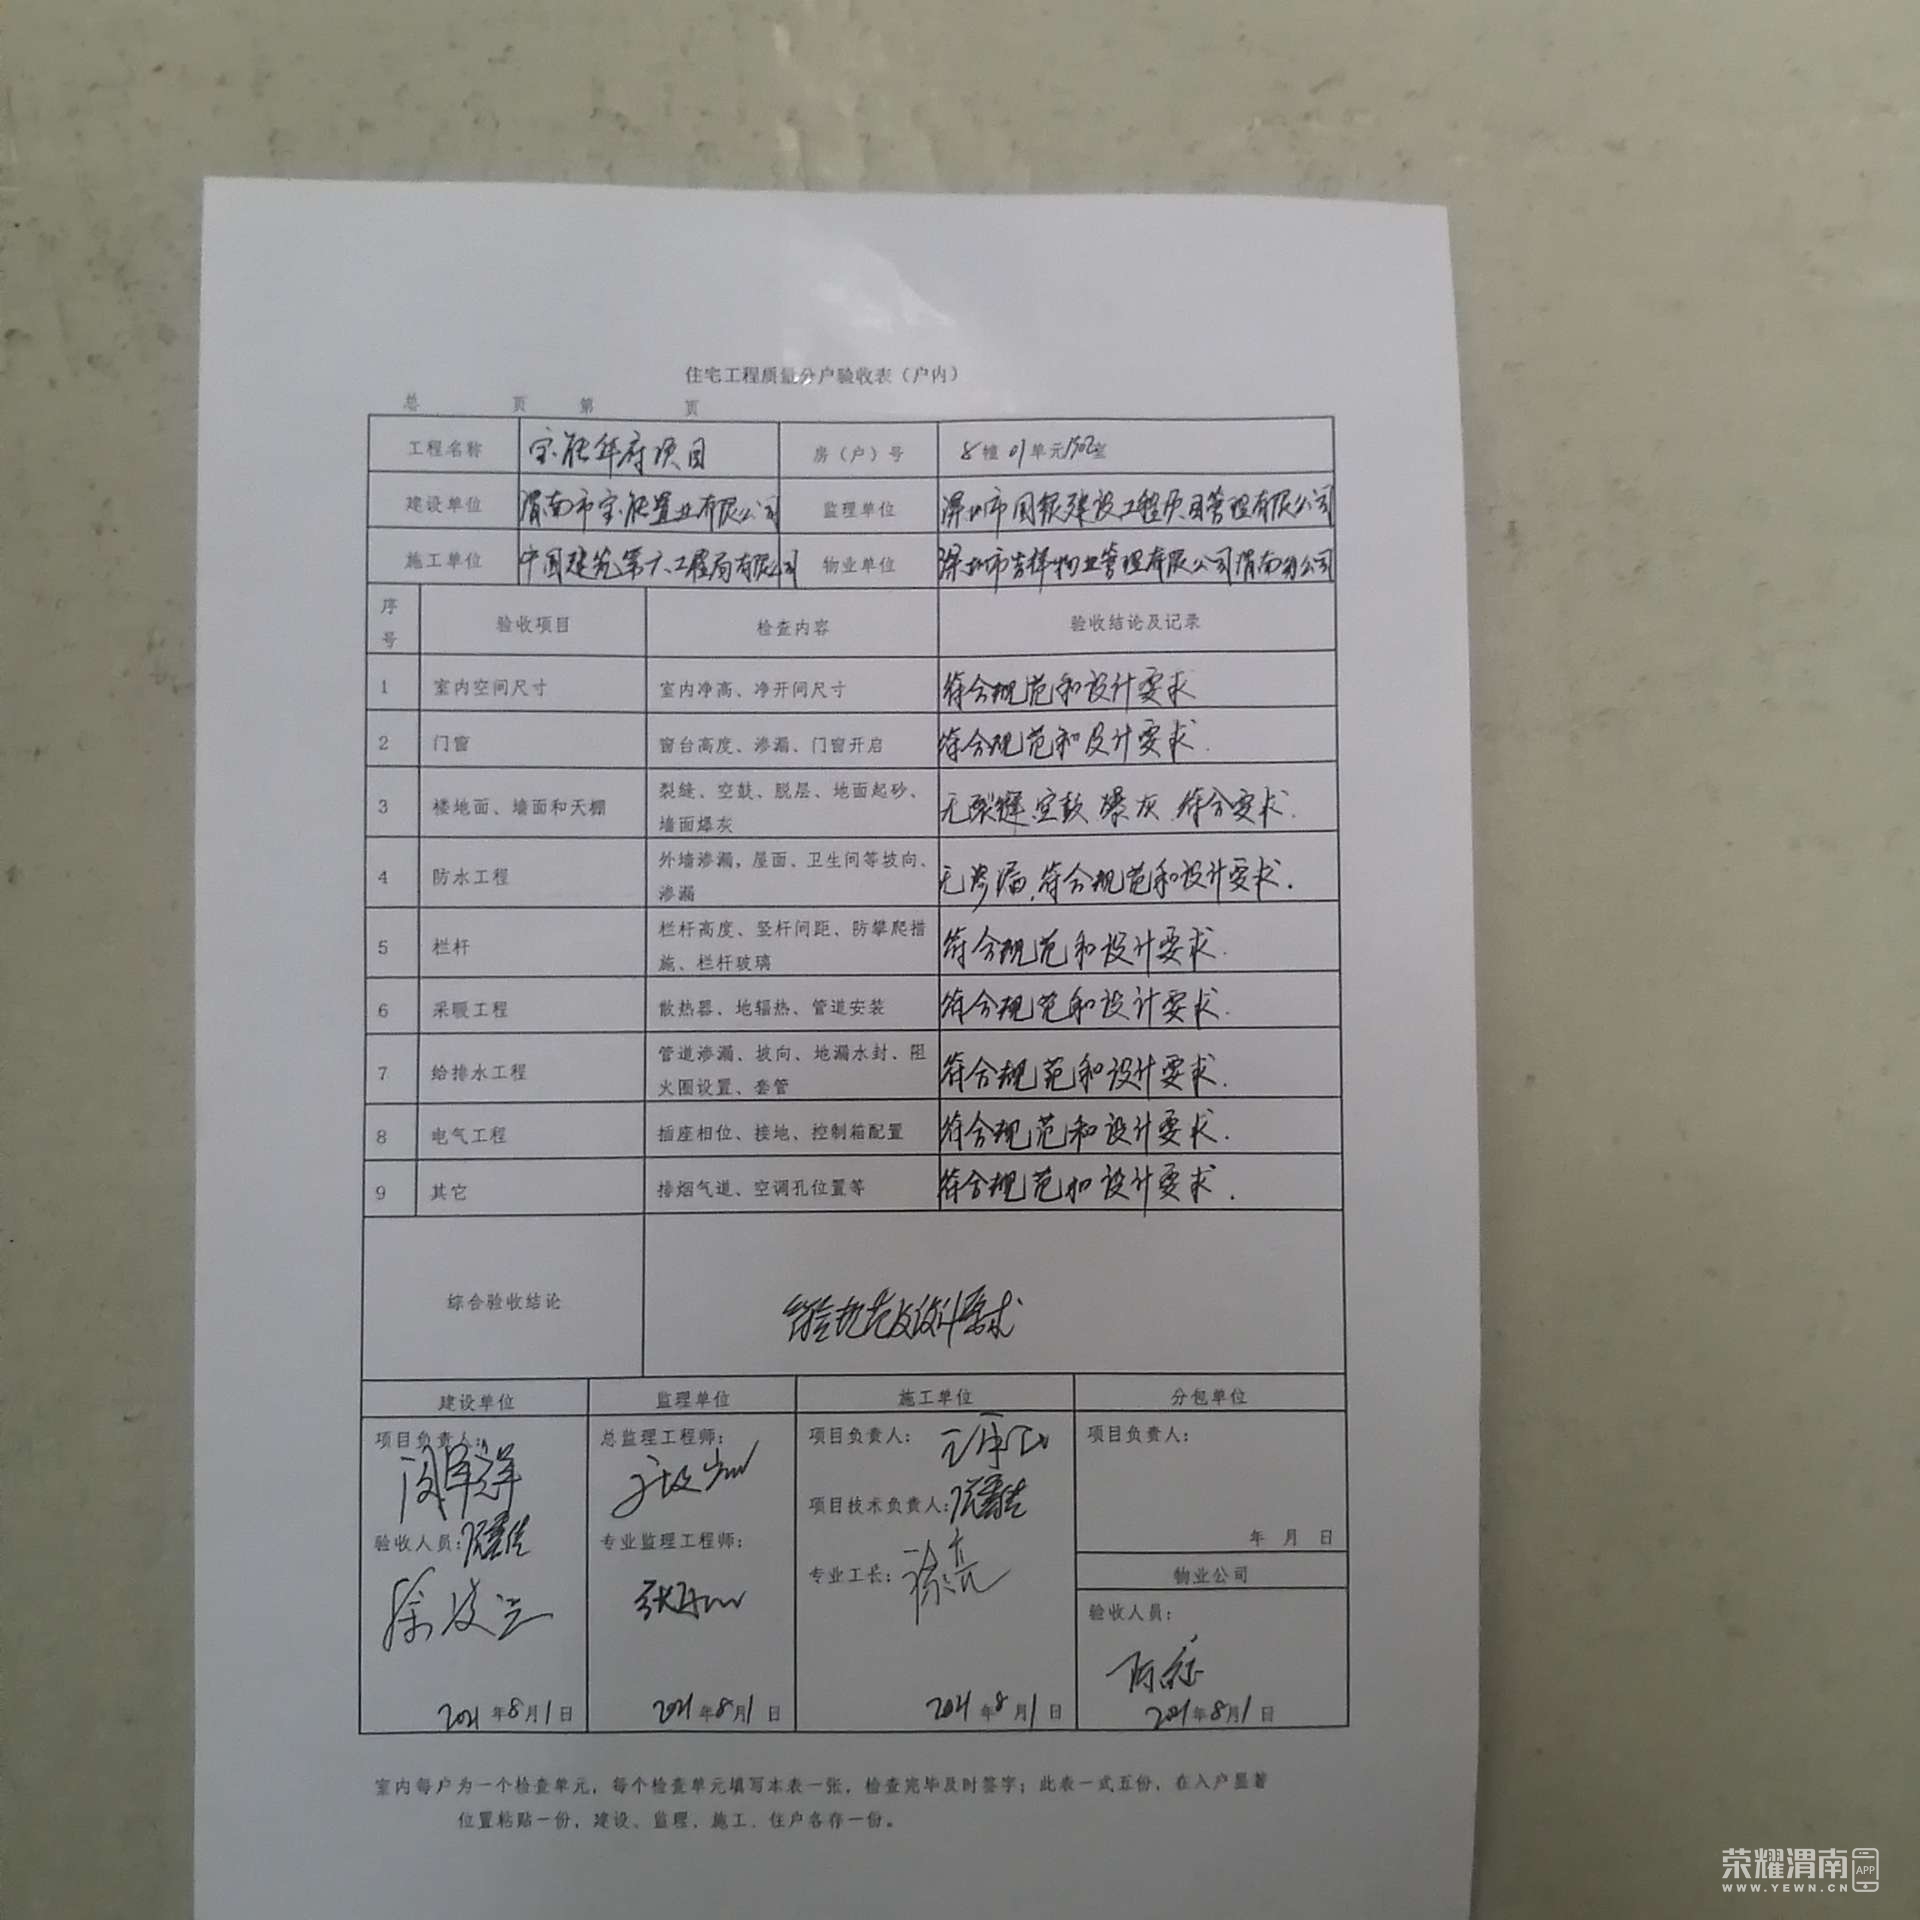 住宅工程质量分户验收表（户内）
总 页 第 页
工程名称 宝能华府项目 房（户）号 8幢01单元1502室
建设单位 渭南市宝能置业有限公司 监理单位 深圳市国银建设工程项目管理有限公司
施工单位 中国建筑第六工程局有限公司 物业单位 深圳市吉祥物业管理有限公司渭南分公司
序号 验收项目 检查内容 验收结论及记录
1 室内空间尺寸 室内净高、净开间尺寸 符合规范和设计要求
2 门窗 窗台高度、渗漏、门窗开启 符合规范和设计要求.
3 楼地面、墙面和天棚 裂缝、空鼓、脱层、地面起砂、
墙面爆灰 无裂缝、空鼓、爆灰、符合要求.
4 防水工程 外墙渗漏，屋面、卫生间等坡向、
渗漏 无渗漏,符合规范和设计要求.
5 栏杆 栏杆高度、竖杆间距、防攀爬措
施、栏杆玻璃 符合规范和设计要求.
6 采暖工程 散热器、地辐热、管道安装 符合规范和设计要求.
7 给排水工程 管道渗漏、坡向、地漏水封、阻
火圈设置、套管 符合规范和设计要求.
8 电气工程 插座相位、接地、控制箱配置 符合规范和设计要求.
9 其它 排烟气道、空调孔位置等 符合规范和设计要求.
综合验收结论 符合规范及设计要求
建设单位 监理单位 施工单位 分包单位
项目负责人： 总监理工程师： 项目负责人： 项目负责人：
项目技术负责人：
验收人员： 专业监理工程师： 年 月 日
专业工长：徐亮 物业公司
验收人员：
2021年8月1日 2021年8月1日 2021年8月1日 2021年8月1日
室内每户为一个检查单元，每个检查单元填写本表一张，检查完毕及时签字；此表一式五份，在入户显著
位置粘贴一份，建设、监理、施工、住户各存一份。
荣耀渭南 APP
WWW.YEWN.CN